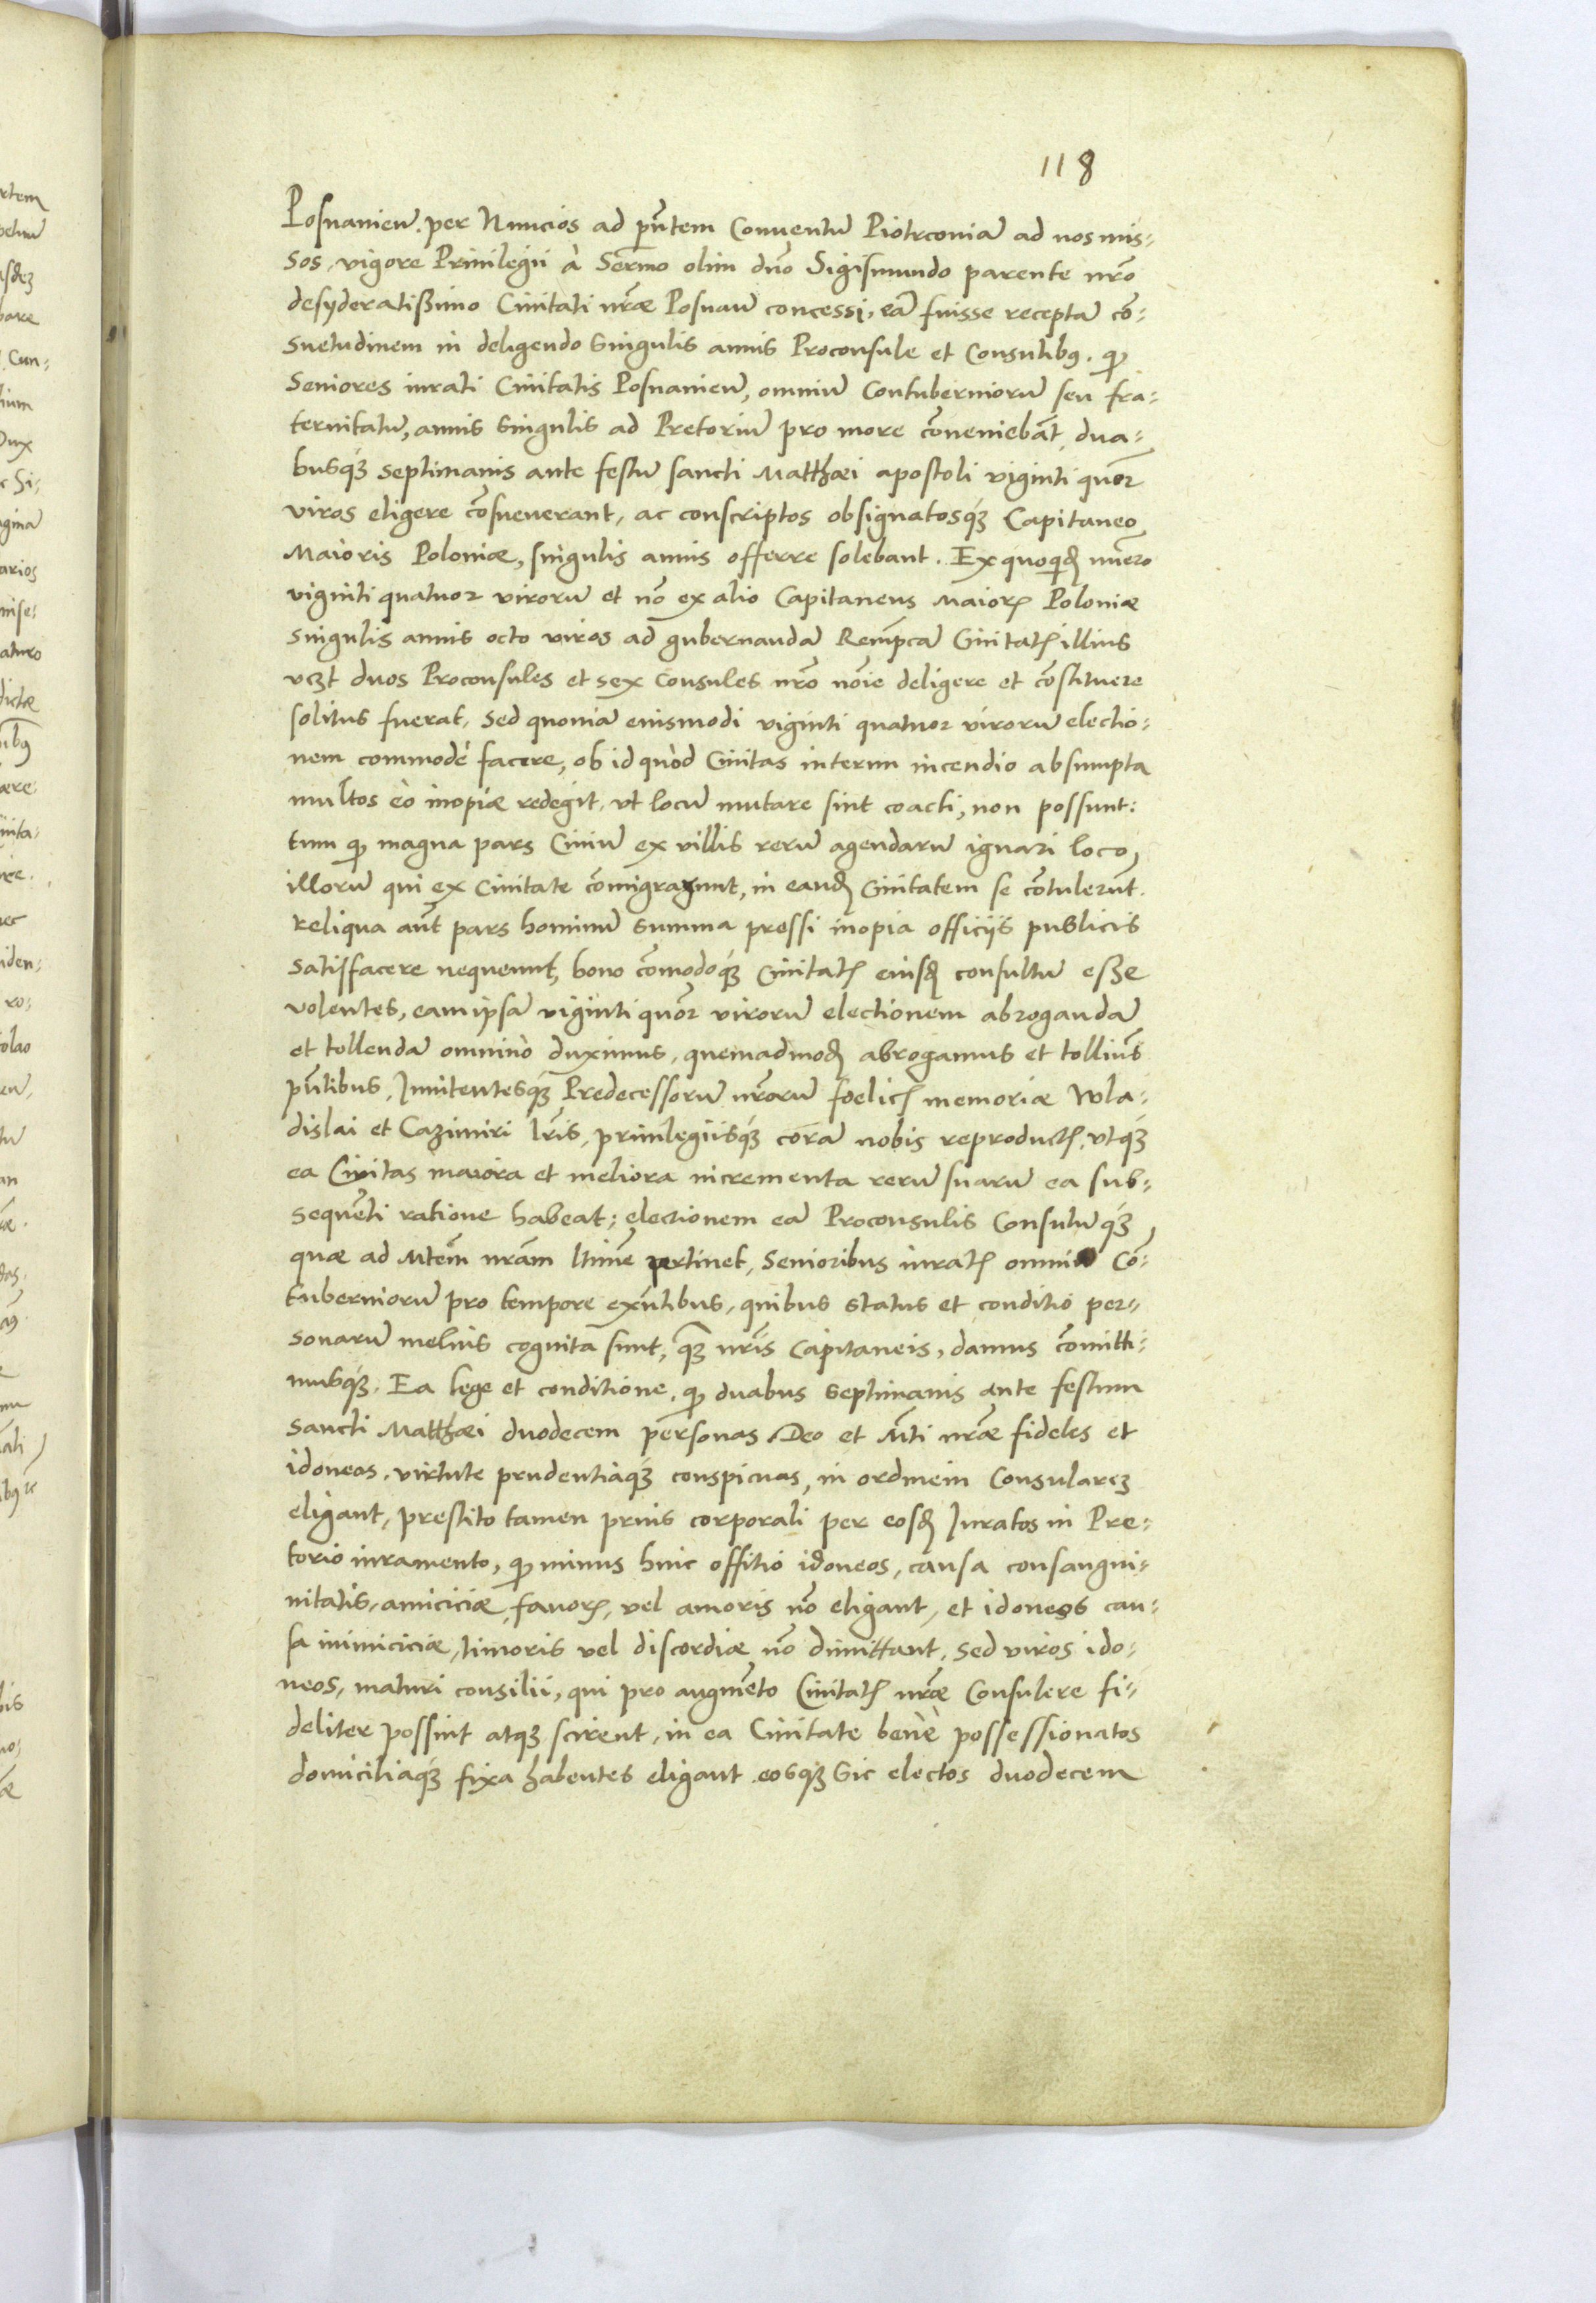 118
Posnanien̄. per Nuncios ad pn̄tem Conuentū Piotrconiā ad nos mis-
sos, vigore Priuilegii à Sermo olim dn̄o Sigismundo parente nr̄o
desyderatißimo Ciuitati nr̄æ Posnan̄ concessi, eā fuisse receptā cō-
suetudinem in deligendo singulis annis Proconsule et Consulibꝯ. ꝙ
Seniores iurati Ciuitatis Posnanien̄, omniū Contuberniorū seu fra-
ternitatū, annis singulis ad Pretoriū pro more cōueniebāt, dua-
busqꝫ septimanis ante festū sancti Matthæi apostoli viginti quōr
viros eligere cōsueuerant, ac conscriptos obsignatosqꝫ Capitaneo
Maioris Poloniæ, singulis annis offerre solebant. Ex quoqid̄ nūero
viginti quatuor virorū et nō ex alio Capitaneus Maiorꝭ Poloniæ
singulis annis octo viros ad gubernandā Remp̄cā Ciuitatꝭ illius
vcꝫt duos Proconsules et sex Consules nr̄o noīe deligere et cōstituere
solitus fuerat, sed quoniā eiusmodi viginti quatuor virorū electio-
nem commodè facere, ob id quòd Ciuitas interim incendio absumpta
multos eò inopiæ redegit, vt locū mutare sint coacti, non possunt:
tum ꝙ magna pars Ciuiū ex villis rerū agendarū ignari loco
illorū qui ex Ciuitate cōmigrarunt, in eandꝭ Ciuitatem se cōtulerūt.
reliqua aūt pars hominū summa pressi inopia officiis publicis
satisfacere nequeunt, bono cōmodoqꝫ Ciuitatꝭ eiusdꝭ consultū eße
volentes, eam ipsā viginti quōr virorū electionem abrogandā
et tollendā omninò duximus, quemadmodꝭ abrogamus et tollim̄s
pn̄tibus, Innitentesqꝫ Predecessorū nr̄orū foelicꝭ memoriæ Wla-
dislai et Cazimiri lr̄is, priuilegiisqꝫ corā nobis reproductꝭ, vtqꝫ
ea Ciuitas maiora et meliora incrementa rerū suarū ea sub-
sequēti ratione habeat; electionem eā Proconsulis Consulūqꝫ
quæ ad Mtēm nr̄am ltīme pertinet, Senioribus iuratꝭ omniū Cō-
tuberniorū pro tempore exn̄tibus, quibus status et conditio per-
sonarū melius cognita sunt, qꝫ nr̄is Capitaneis, damus cōmitti-
musqꝫ. Ea lege et conditione, ꝙ duabus septimanis ante festum
Sancti Matthæi duodecem personas Deo et Mti nr̄æ fideles et
idoneas, virtute prudentiaqꝫ conspicuas, in ordinem Consularꝫ
eligant, prestito tamen prius corporali per eosdꝭ Iuratos in Pre-
torio iuramento, ꝙ minus huic offitio idoneos, causa consangui-
nitatis, amiciciæ, fauorꝭ, vel amoris nō eligant, et idoneos cau-
sa inimiciciæ, timoris vel discordiæ nō dimittant, sed viros ido-
neos, maturi consilii, qui pro augmēto Ciuitatꝭ nr̄æ Consulere fi-
deliter possint atqꝫ scirent, in ea Ciuitate benè possessionatos
domiciliaqꝫ fixa habentes eligant eosqꝫ sic electos duodecem